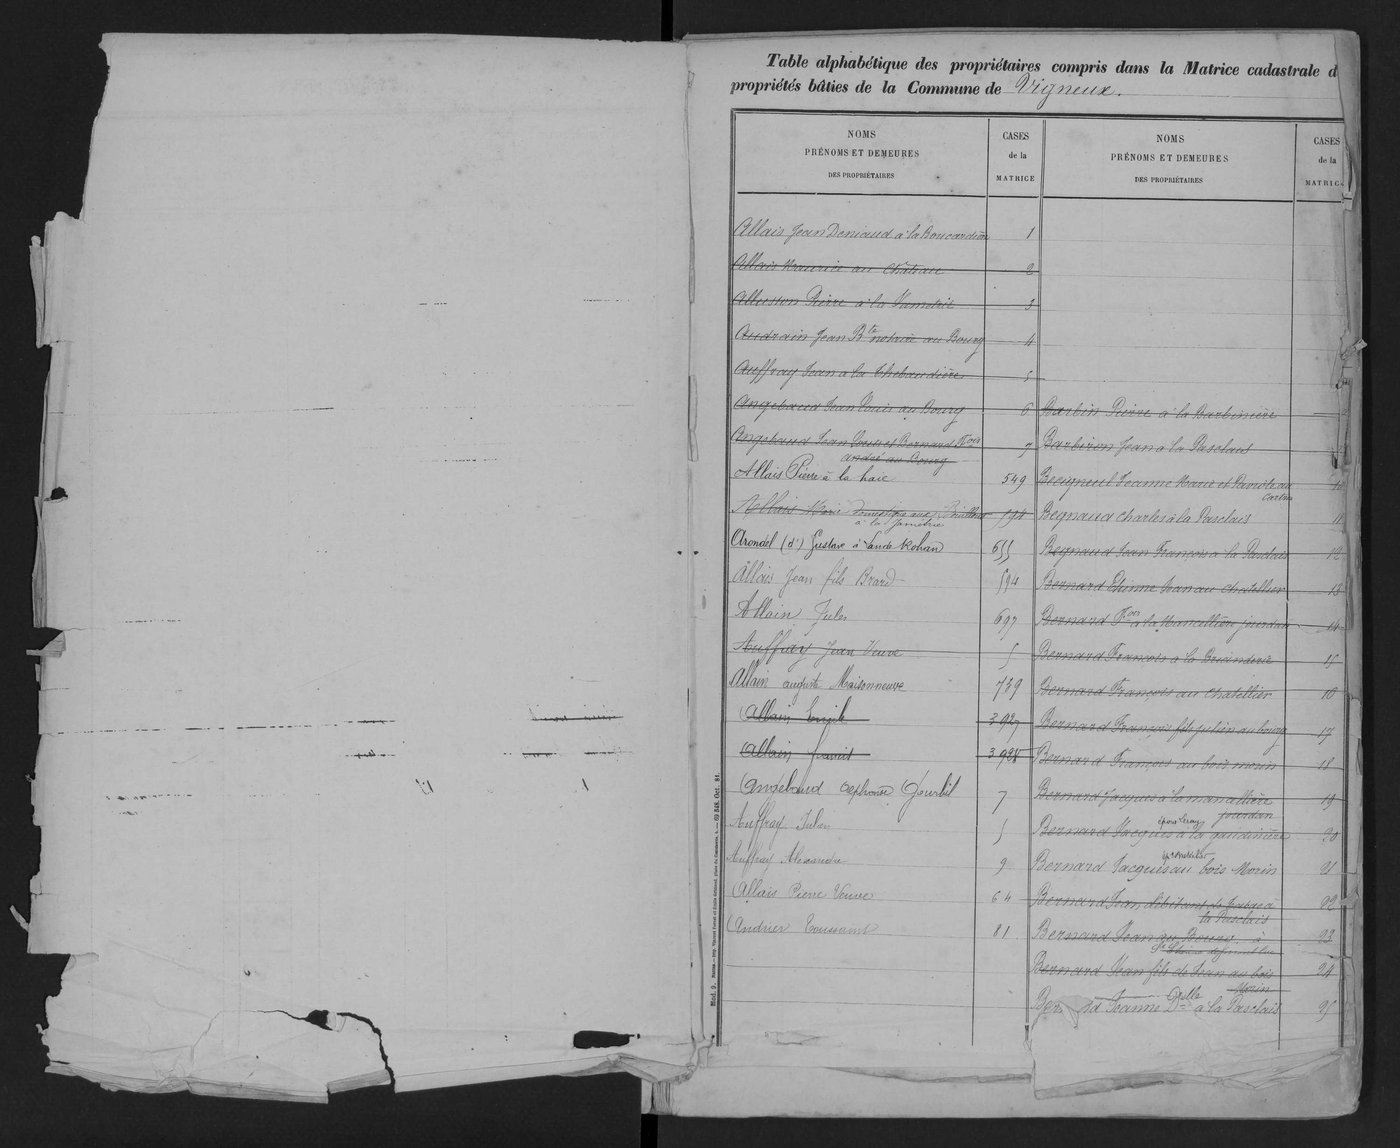 Table alphabétique des propriétaires compris dans la Matrice cadastrale d
propriétés bâties de la Commune de Vigneux.
NOMS
PRÉNOMS ET DEMEURES
DES PROPRIÉTAIRES
CASES
de la
MATRICE
Allais Jean Deniaud à la Boucardière 1
Allais Maurice au Château 2
Allusson Pierre à la 3
Audrain Jean Bte notaire au Bourg 4
Auffray Jean à la Thebaudière 5
Angebaud Jean Louis au Bourg 6
Angebaud Jean Louis et Bernard Fois 7
André au Bourg
Allais Pierre à la haie 549
Allais Marie Domestique aux 594
à la Jamétrie
Arondel (d') Gustave à Lande Rohan 655
Allais Jean fils Brard 594
Allain Jules 697
Auffray Jean Veuve 5
Allain auguste Maisonneuve 739
Allain Emile 3 927
Allain francis 3 928
Angebaud Alphonse Gourbil 7
Auffray Julien 5
Auffray Alexandre 9
Allais Pierre Veuve 64
Andrier Toussaint 81
NOMS
PRÉNOMS ET DEMEURES
DES PROPRIÉTAIRES
CASES
de la
MATRICE
Barbin Pierre à la Barbinière
Barbiron Jean à la Pasclais
Becigneul Jeanne Marie et 10
Begnaud Charles à la Pasclais 11
Begnaud Jean François à la Pasclais 12
Bernard Etienne Jean au Chatellier 13
Bernard Fois à la Mancellière jourdan 14
Bernard François à la 15
Bernard François au Chatellier 16
Bernard François fils julien au bourg 17
Bernard François au bois morin 18
Bernard Jacques à la mancellière 19
jourdan
Bernard Jacques à la gaudinière 20
Bernard Jacques au bois Morin 21
Bernard Jean débitant de tabac à 22
la Pasclais
Bernard Jean au Bourg à 23
Bernard Jean fils de Jean au bois 24
Morin
Jeanne Delle à la Pasclais 25
Mod. 9.